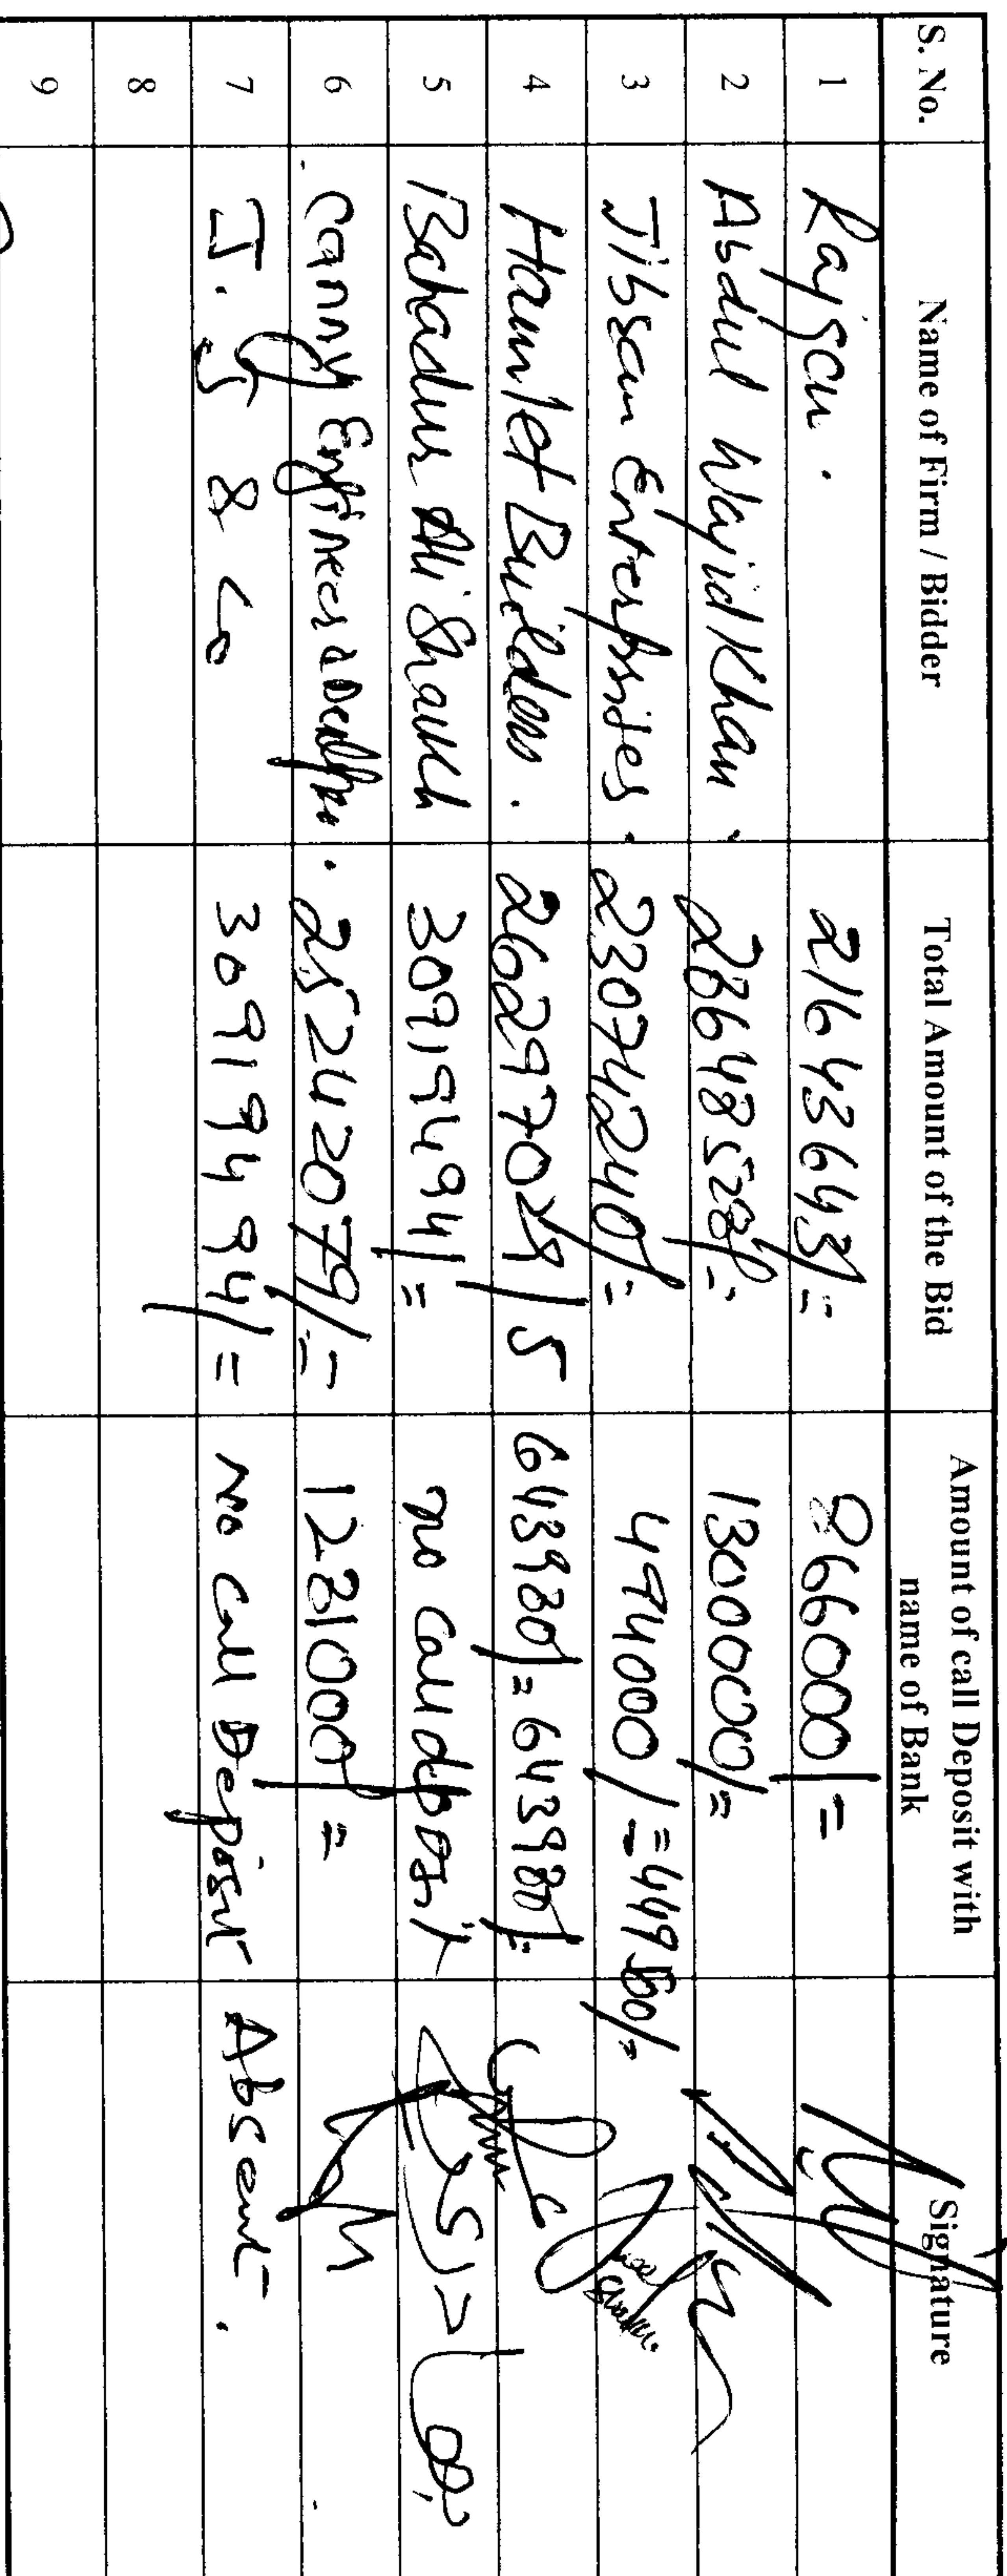 S. No. Name of Firm / Bidder Total Amount of the Bid Amount of call Deposit with name of Bank Signature
1 Rajscn. 21643643/=
2 Abdul Wajid Khan 23648528/= 1300000/=
3 Jibsam Enterprises. 23074240/= 494000/=
4 Hamlet Builders. 26297029/5 643980/= 643980/=
5 Bahadur Ali Shaikh 30919494/= no call deposit
6 Canny Engineers 25242079/= 1281000/=
7 J. & Co 30919494/= no call Deposit Absent.
8
9